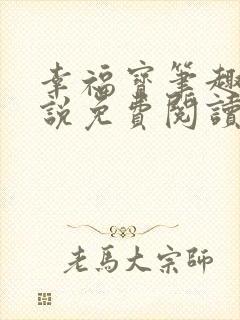 幸福寶筆趣
說免費閱讀
老馬大宗師